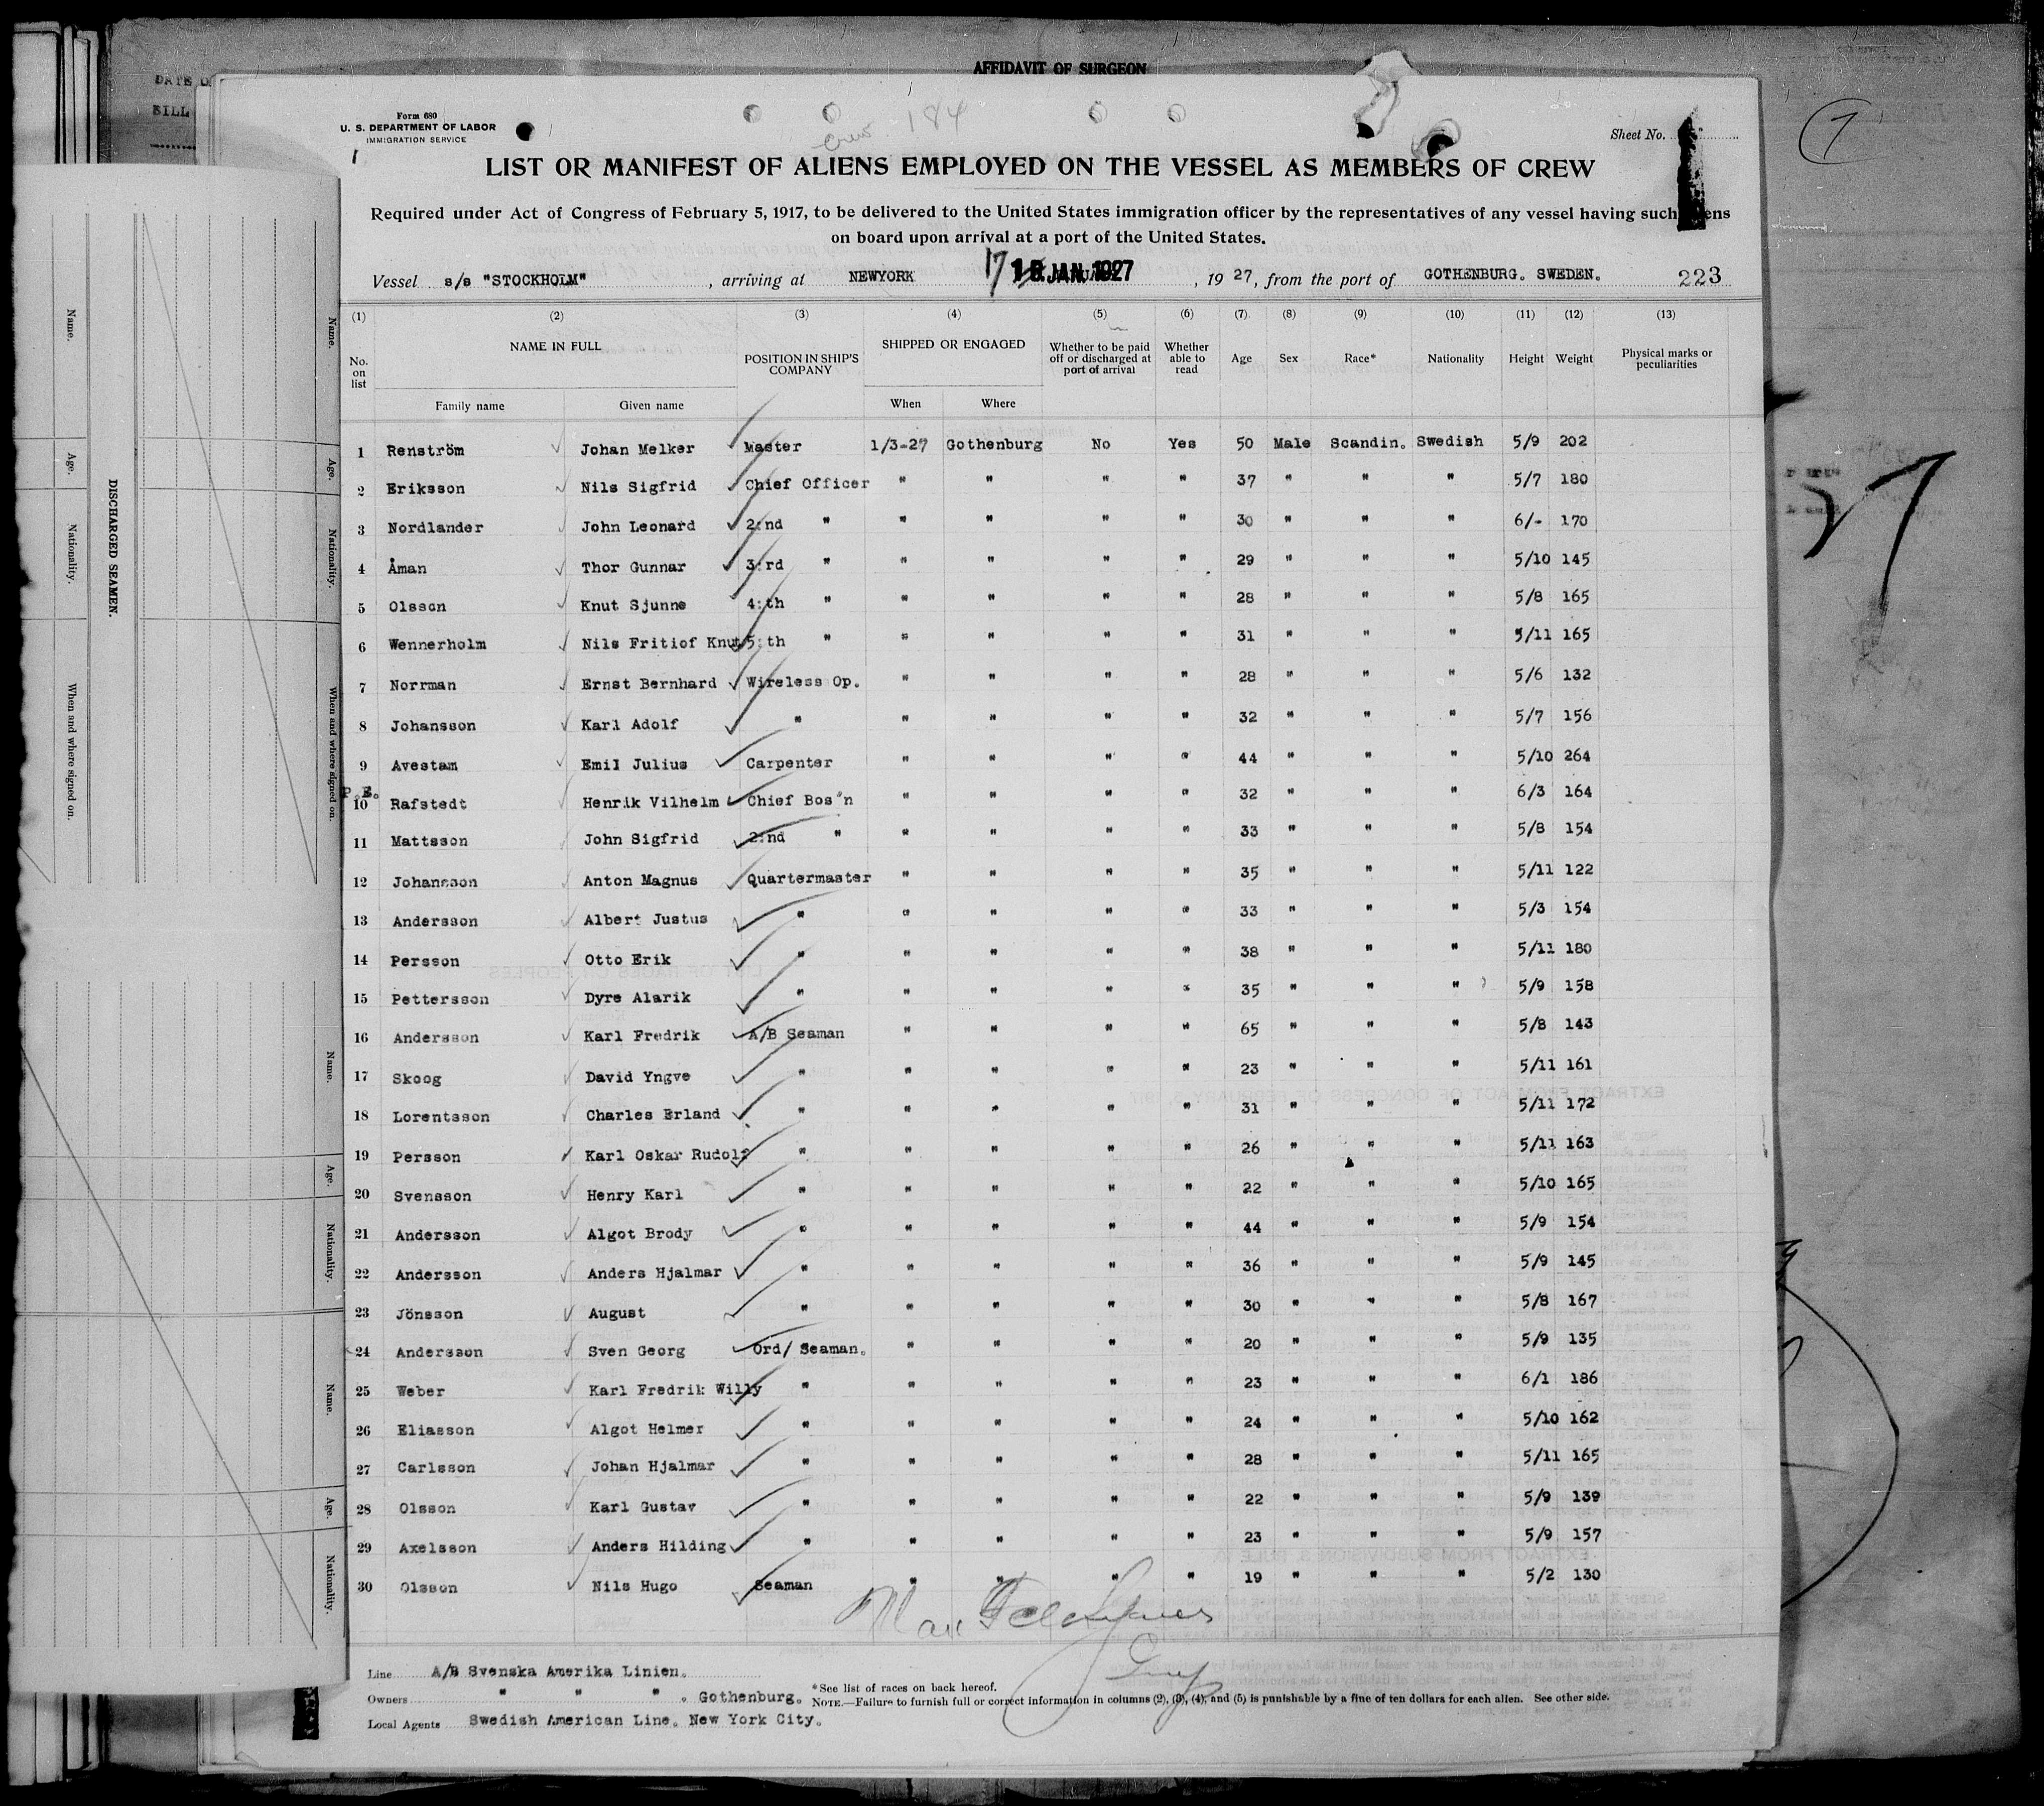 AFFIDAVIT OF SURGEON
Form 680
U. S. DEPARTMENT OF LABOR
IMMIGRATION SERVICE
Crew 184
Sheet No.
LIST OR MANIFEST OF ALIENS EMPLOYED ON THE VESSEL AS MEMBERS OF CREW
Required under Act of Congress of February 5, 1917, to be delivered to the United States immigration officer by the representatives of any vessel having such
on board upon arrival at a port of the United States.
Vessel s/s "STOCKHOLM" , arriving at NEWYORK 17 JAN. 1927 , 19 27, from the port of GOTHENBURG. SWEDEN. 223
(1) (2) (3) (4) (5) (6) (7) (8) (9) (10) (11) (12) (13)
No. on list NAME IN FULL Family name Given name POSITION IN SHIP'S COMPANY SHIPPED OR ENGAGED When Where Whether to be paid off or discharged at port of arrival Whether able to read Age Sex Race* Nationality Height Weight Physical marks or peculiarities
1 Renström Johan Melker Master 1/3-27 Gothenburg No Yes 50 Male Scandin. Swedish 5/9 202
2 Eriksson Nils Sigfrid Chief Officer " " " " 37 " " " 5/7 180
3 Nordlander John Leonard 2:nd " " " " " 30 " " " 6/- 170
4 Åman Thor Gunnar 3:rd " " " " " 29 " " " 5/10 145
5 Olsson Knut Sjunne 4:th " " " " " 28 " " " 5/8 165
6 Wennerholm Nils Fritiof Knut 5:th " " " " " 31 " " " 5/11 165
7 Norrman Ernst Bernhard Wireless Op. " " " " 28 " " " 5/6 132
8 Johansson Karl Adolf " " " " " 32 " " " 5/7 156
9 Avestam Emil Julius Carpenter " " " " 44 " " " 5/10 264
P.E.
10 Rafstedt Henrik Vilhelm Chief Bos"n " " " " 32 " " " 6/3 164
11 Mattsson John Sigfrid 2:nd " " " " " 33 " " " 5/8 154
12 Johansson Anton Magnus Quartermaster " " " " 35 " " " 5/11 122
13 Andersson Albert Justus " " " " " 33 " " " 5/3 154
14 Persson Otto Erik " " " " " 38 " " " 5/11 180
15 Pettersson Dyre Alarik " " " " " 35 " " " 5/9 158
16 Andersson Karl Fredrik A/B Seaman " " " " 65 " " " 5/8 143
17 Skoog David Yngve " " " " " 23 " " " 5/11 161
18 Lorentsson Charles Erland " " " " " 31 " " " 5/11 172
19 Persson Karl Oskar Rudolf " " " " " 26 " " " 5/11 163
20 Svensson Henry Karl " " " " " 22 " " " 5/10 165
21 Andersson Algot Brody " " " " " 44 " " " 5/9 154
22 Andersson Anders Hjalmar " " " " " 36 " " " 5/9 145
23 Jönsson August " " " " " 30 " " " 5/8 167
24 Andersson Sven Georg Ord/ Seaman. " " " " 20 " " " 5/9 135
25 Weber Karl Fredrik Willy " " " " " 23 " " " 6/1 186
26 Eliasson Algot Helmer " " " " " 24 " " " 5/10 162
27 Carlsson Johan Hjalmar " " " " " 28 " " " 5/11 165
28 Olsson Karl Gustav " " " " " 22 " " " 5/9 139
29 Axelsson Anders Hilding " " " " " 23 " " " 5/9 157
30 Olsson Nils Hugo Seaman " " " " 19 " " " 5/2 130
Line A/B Svenska Amerika Linien.
Owners " " " . Gothenburg.
Local Agents Swedish American Line. New York City.
*See list of races on back hereof.
NOTE.—Failure to furnish full or correct information in columns (2), (3), (4), and (5) is punishable by a fine of ten dollars for each alien. See other side.
DISCHARGED SEAMEN.
Name.
Age.
Nationality.
When and where signed on.
Name.
Age.
Nationality.
When and where signed on.
Name.
Age.
Nationality.
Name.
Age.
Nationality.